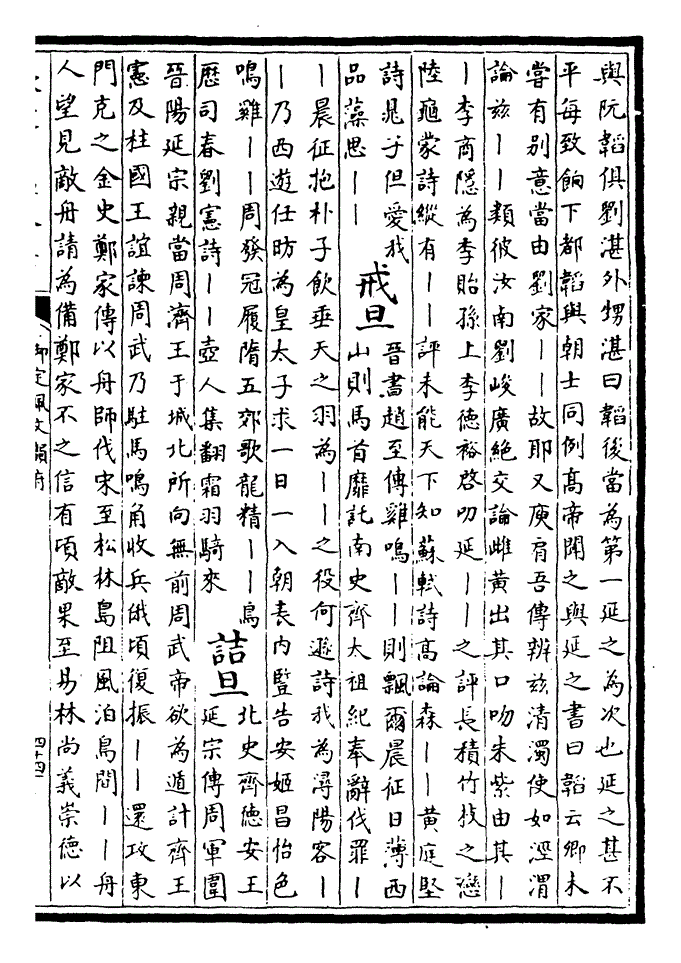 與阮韜俱劉湛外甥湛曰韜後當為第一延之為次也延之甚不
平每致餉下都韜與朝士同例高帝聞之與延之書曰韜云卿未
嘗有别意當由劉家丨丨故耶又庾肩吾傳辨兹清濁使如涇渭
論兹丨丨類彼汝南劉峻廣絶交論雌黄出其口吻朱紫由其丨
丨李商隱為李貽孫上李德裕啓叨延丨丨之評長積竹技之戀
陸龜蒙詩縱有丨丨評未能天下知蘇軾詩高論森丨丨黄庭堅
詩晁子但愛我
品藻思丨丨
戒旦
晉書趙至傳雞鳴丨丨則飄爾晨征日薄西
山則馬首靡託南史齊太祖紀奉辭伐罪丨
丨晨征抱朴子飲垂天之羽為丨丨之役何遜詩我為潯陽客丨
丨乃西遊任昉為皇太子求一日一入朝表内豎告安姬昌怡色
鳴雞丨丨周發冠履隋五郊歌龍精丨丨鳥
歴司春劉憲詩丨丨壺人集翻霜羽騎來
詰旦
北史齊德安王
延宗傳周軍圍
晉陽延宗親當周濟王于城北所向無前周武帝欲為遁計齊王
憲及柱國王誼諫周武乃駐馬鳴角收兵俄頃復振丨丨還攻東
門克之金史鄭家傳以舟師伐宋至松林島阻風泊島間丨丨舟
人望見敵舟請為備鄭家不之信有頃敵果至易林尚義崇德以
御定佩文韻府